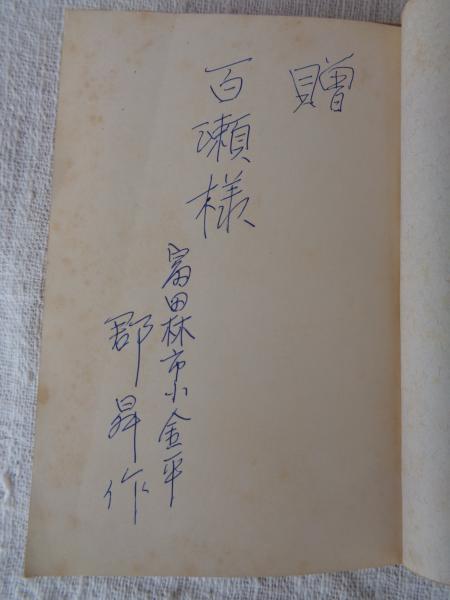 贈
百瀬様
富田林市小金平
郡昇作